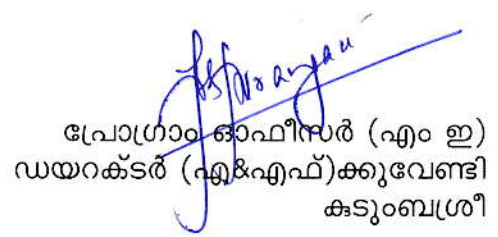 പ്രോഗ്രാം ഓഫീസർ (എം ഇ)
ഡയറക്ടർ (എ&എഫ്)ക്കുവേണ്ടി
കുടുംബശ്രീ